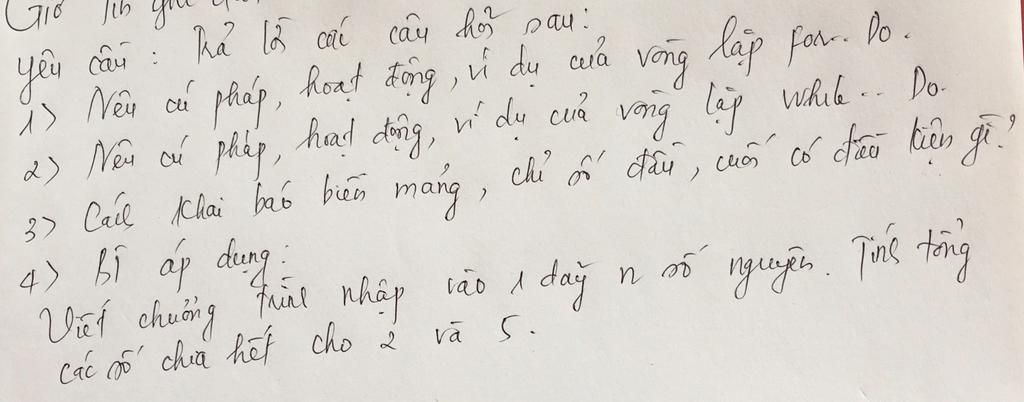 Giờ Tin
Yêu cầu : Trả lời các câu hỏi sau:
1) Nêu cú pháp, hoạt động, ví dụ của vòng lặp for.. Do.
2) Nêu cú pháp, hoạt động, ví dụ của vòng lặp while.. Do.
3) Cách khai báo biến mảng, chỉ số đầu, cuối có điều kiện gì?
4) BT áp dụng:
Viết chương trình nhập vào 1 dãy n số nguyên. Tính tổng
các số chia hết cho 2 và 5.